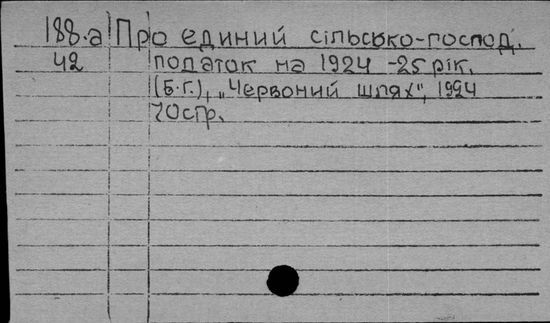 188.a Про єдиний сільсько-господ.
42 податок на 1924 -25 рік.
(Б.г.), „Червоний шлях", 1924
70стр.